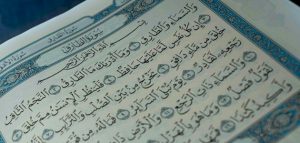 سورة الطارق
بسم الله الرحمن الرحيم
وَالسَّمَاءِ وَالطَّارِقِ وَمَا أَدْرَاكَ مَا الطَّارِقُ النَّجْمُ الثَّاقِبُ
إِن كُلُّ نَفْسٍ لَّمَّا عَلَيْهَا حَافِظٌ فَلْيَنظُرِ الْإِنسَانُ مِمَّ خُلِقَ
خُلِقَ مِن مَّاءٍ دَافِقٍ يَخْرُجُ مِن بَيْنِ الصُّلْبِ وَالتَّرَائِبِ
رَجْعِهِ لَقَادِرٌ يَوْمَ تُبْلَى السَّرَائِرُ فَمَا لَهُ مِن
وَالسَّمَاءِ ذَاتِ الرَّجْعِ وَالْأَرْضِ
لَقَوْلٌ فَصْلٌ وَمَا هُوَ بِالْهَزْلِ
وَأَكِيدُ كَيْدًا